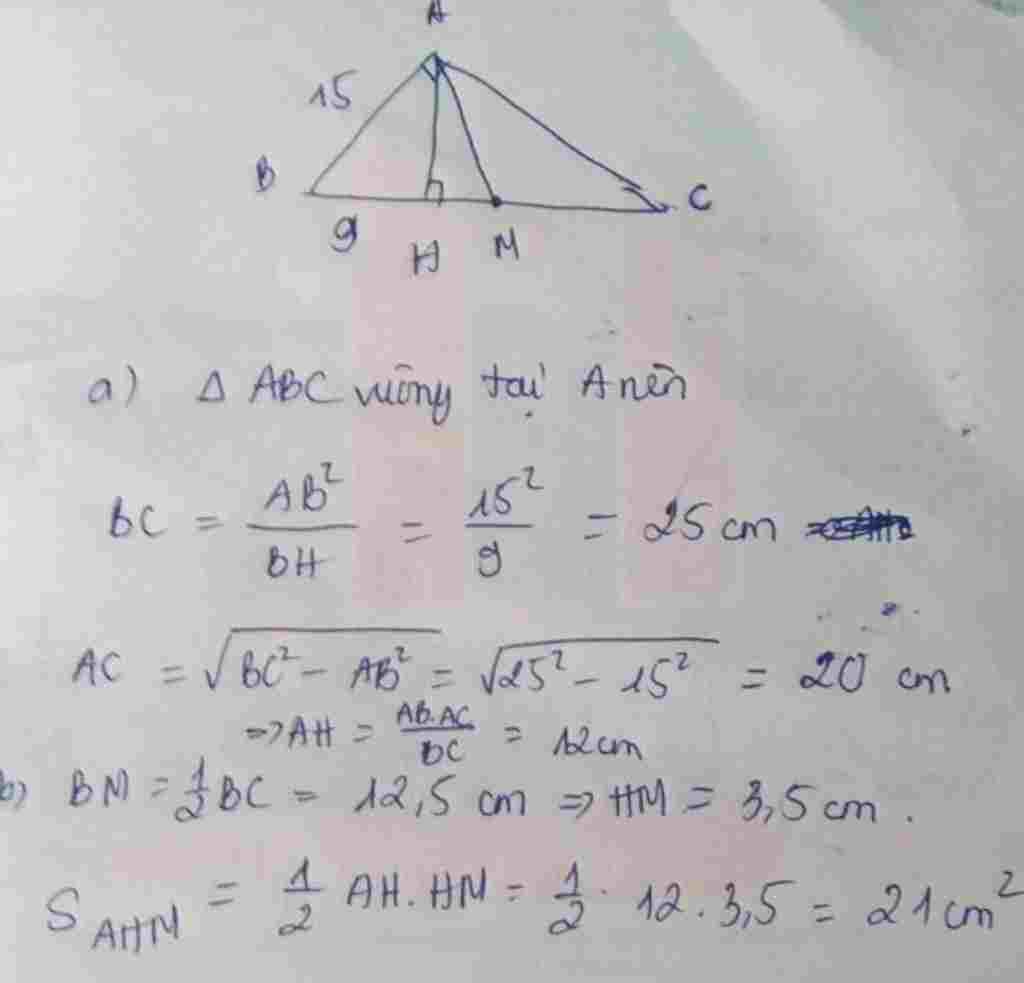 A
15
B
C
9
H
M
a) Δ ABC vuông tại A nên
BC = AB² / BH = 15² / 9 = 25 cm
AC = √(BC² - AB²) = √(25² - 15²) = 20 cm
=> AH = AB.AC / BC = 12cm
b) BM = 1/2 BC = 12,5 cm => HM = 3,5 cm.
S AHM = 1/2 AH.HM = 1/2 . 12.3,5 = 21cm²